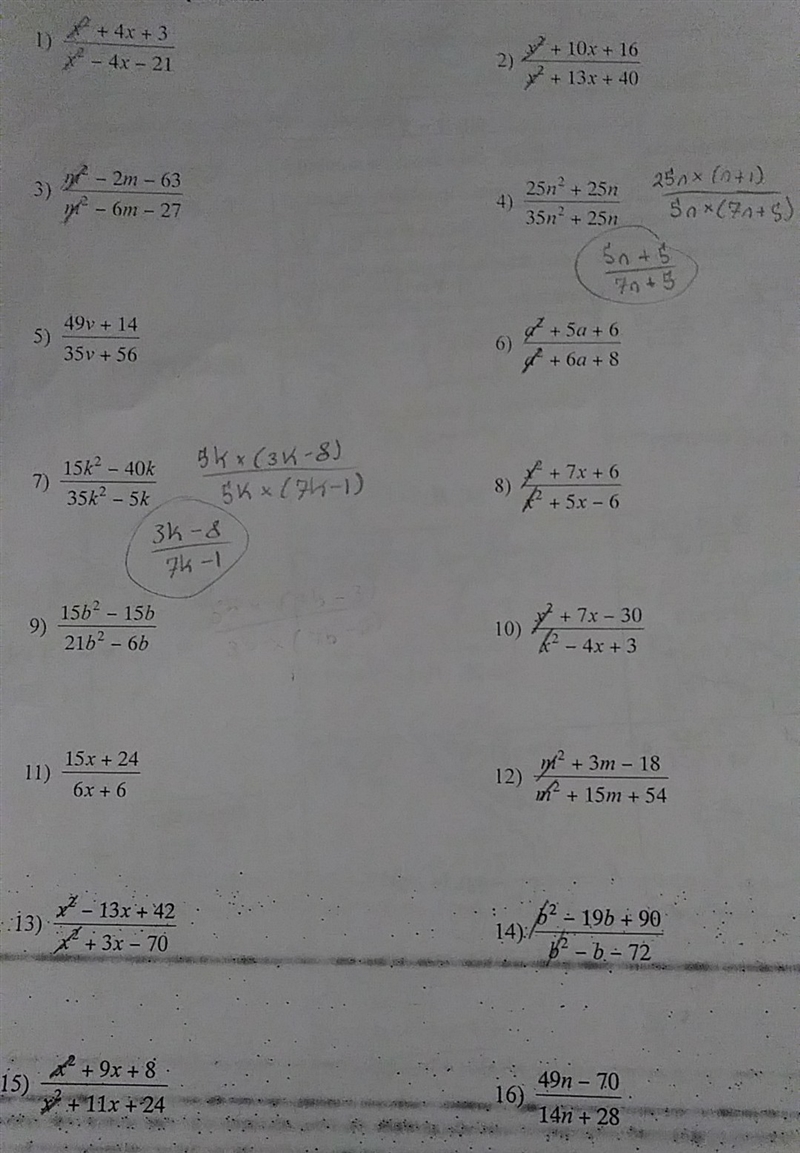 1) x² + 4x + 3 / x² − 4x − 21
2) x² + 10x + 16 / x² + 13x + 40
3) m² − 2m − 63 / m² − 6m − 27
4) 25n² + 25n / 35n² + 25n
25n × (n+1) / 5n × (7n+5)
5n + 5 / 7n + 5
5) 49v + 14 / 35v + 56
6) a² + 5a + 6 / a² + 6a + 8
7) 15k² − 40k / 35k² − 5k
5k × (3k − 8) / 5k × (7k − 1)
3k − 8 / 7k − 1
8) x² + 7x + 6 / x² + 5x − 6
9) 15b² − 15b / 21b² − 6b
10) x² + 7x − 30 / x² − 4x + 3
11) 15x + 24 / 6x + 6
12) m² + 3m − 18 / m² + 15m + 54
13) x² − 13x + 42 / x² + 3x − 70
14) b² − 19b + 90 / b² − b − 72
15) x² + 9x + 8 / x² + 11x + 24
16) 49n − 70 / 14n + 28